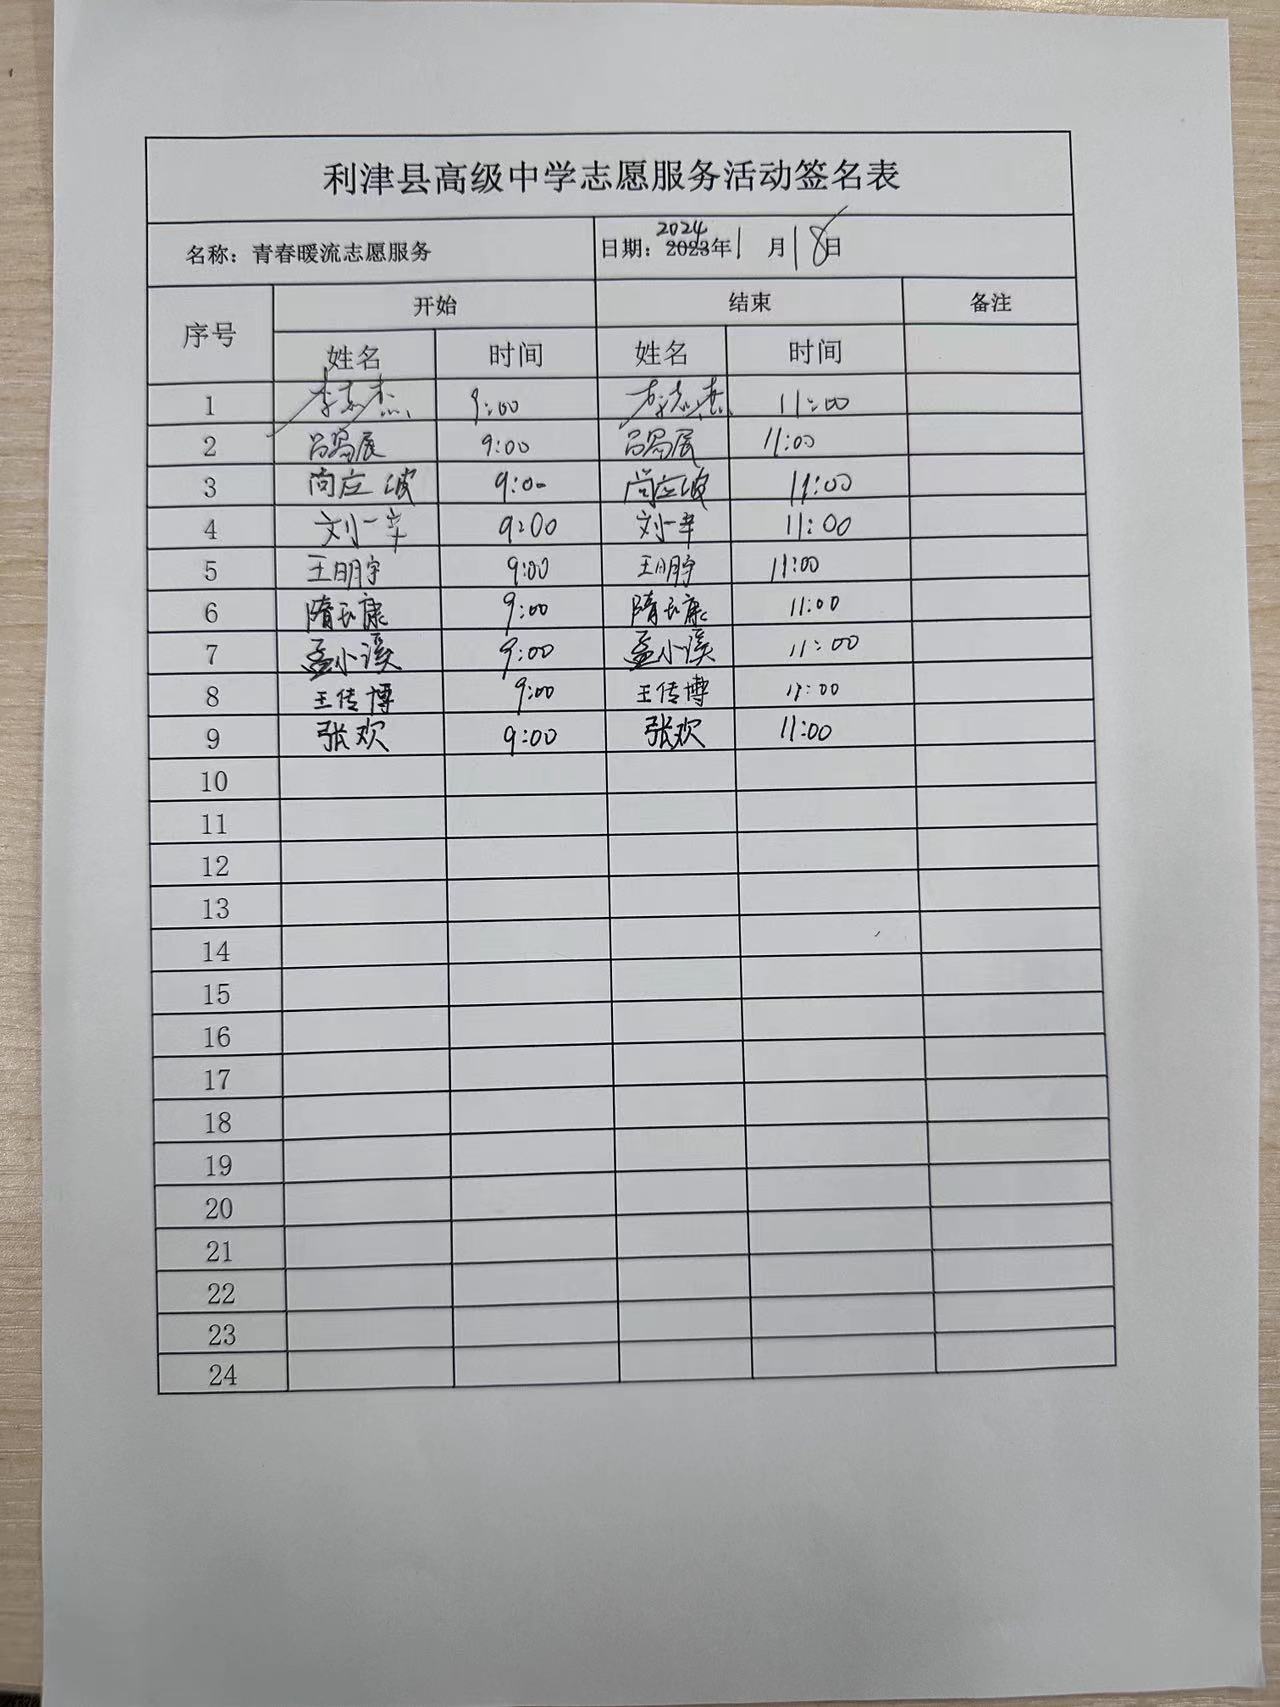 利津县高级中学志愿服务活动签名表
名称：青春暖流志愿服务 2024 日期：2023年1月18日
序号 开始 结束 备注
姓名 时间 姓名 时间
1 李志杰 9:00 李志杰 11:00
2 9:00 11:00
3 尚应波 9:00 尚应波 11:00
4 刘一辛 9:00 刘一辛 11:00
5 王明宇 9:00 王明宇 11:00
6 隋玉康 9:00 隋玉康 11:00
7 孟小溪 9:00 孟小溪 11:00
8 王传博 9:00 王传博 11:00
9 张欢 9:00 张欢 11:00
10
11
12
13
14
15
16
17
18
19
20
21
22
23
24